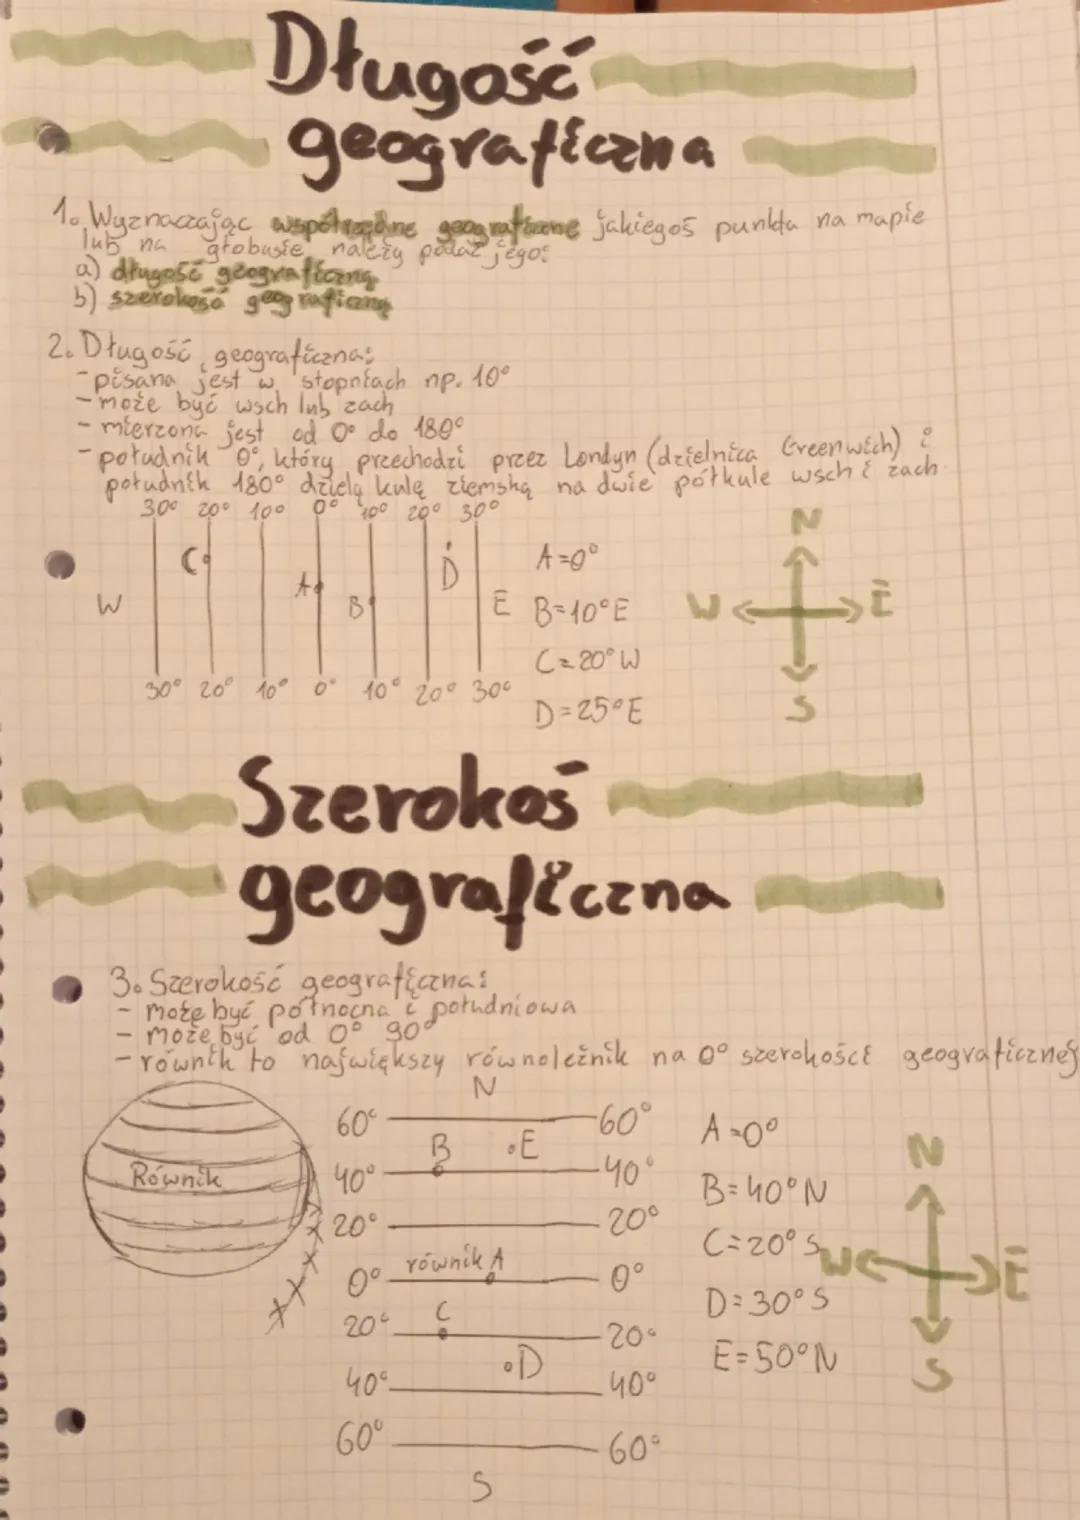 Długość
geograficzna
1. Wyznaczając współrzędne geograficzne jakiegoś punktu na mapie
lub na globusie należy podać jego:
a) długość geograficzną
b) szerokość geograficzną
2. Długość geograficzna:
- pisana jest w stopniach np. 10°
- może być wsch lub zach
- mierzona jest od 0° do 180°
- południk 0°, który przechodzi przez Londyn (dzielnica Greenwich) i
południk 180° dzielą kulę ziemską na dwie półkule wsch i zach
30° 20° 10° 0° 10° 20° 30°
C
D
A
B
W
E
30° 20° 10° 0° 10° 20° 30°
A=0°
B=10°E
C=20°W
D=25°E
N
W E
S
Szerokoś
geograficzna
3. Szerokość geograficzna:
- może być północna i południowa
- może być od 0° 90°
- równik to największy równoleżnik na 0° szerokości geograficznej
Równik
N
60° 60°
B .E
40° 40°
20° 20°
równik A
0° 0°
C
20° 20°
D
40° 40°
60° 60°
S
A=0°
B=40°N
C=20°S
D=30°S
E=50°N
N
W E
S